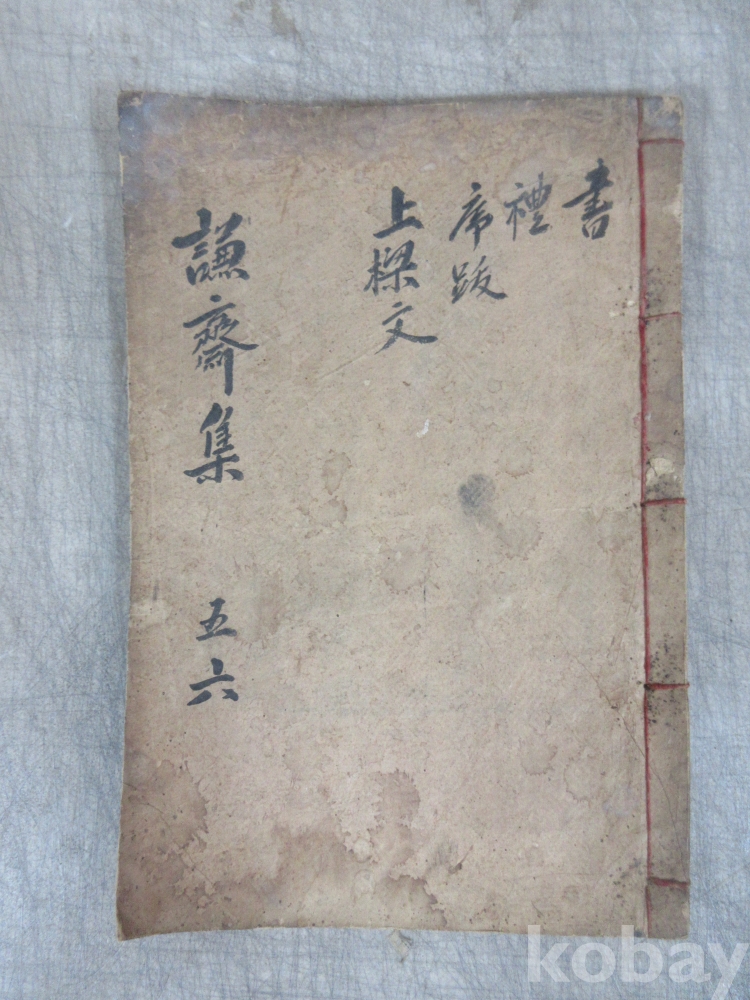 書
禮
序跋
上樑文
謙齋集 五六
kobay